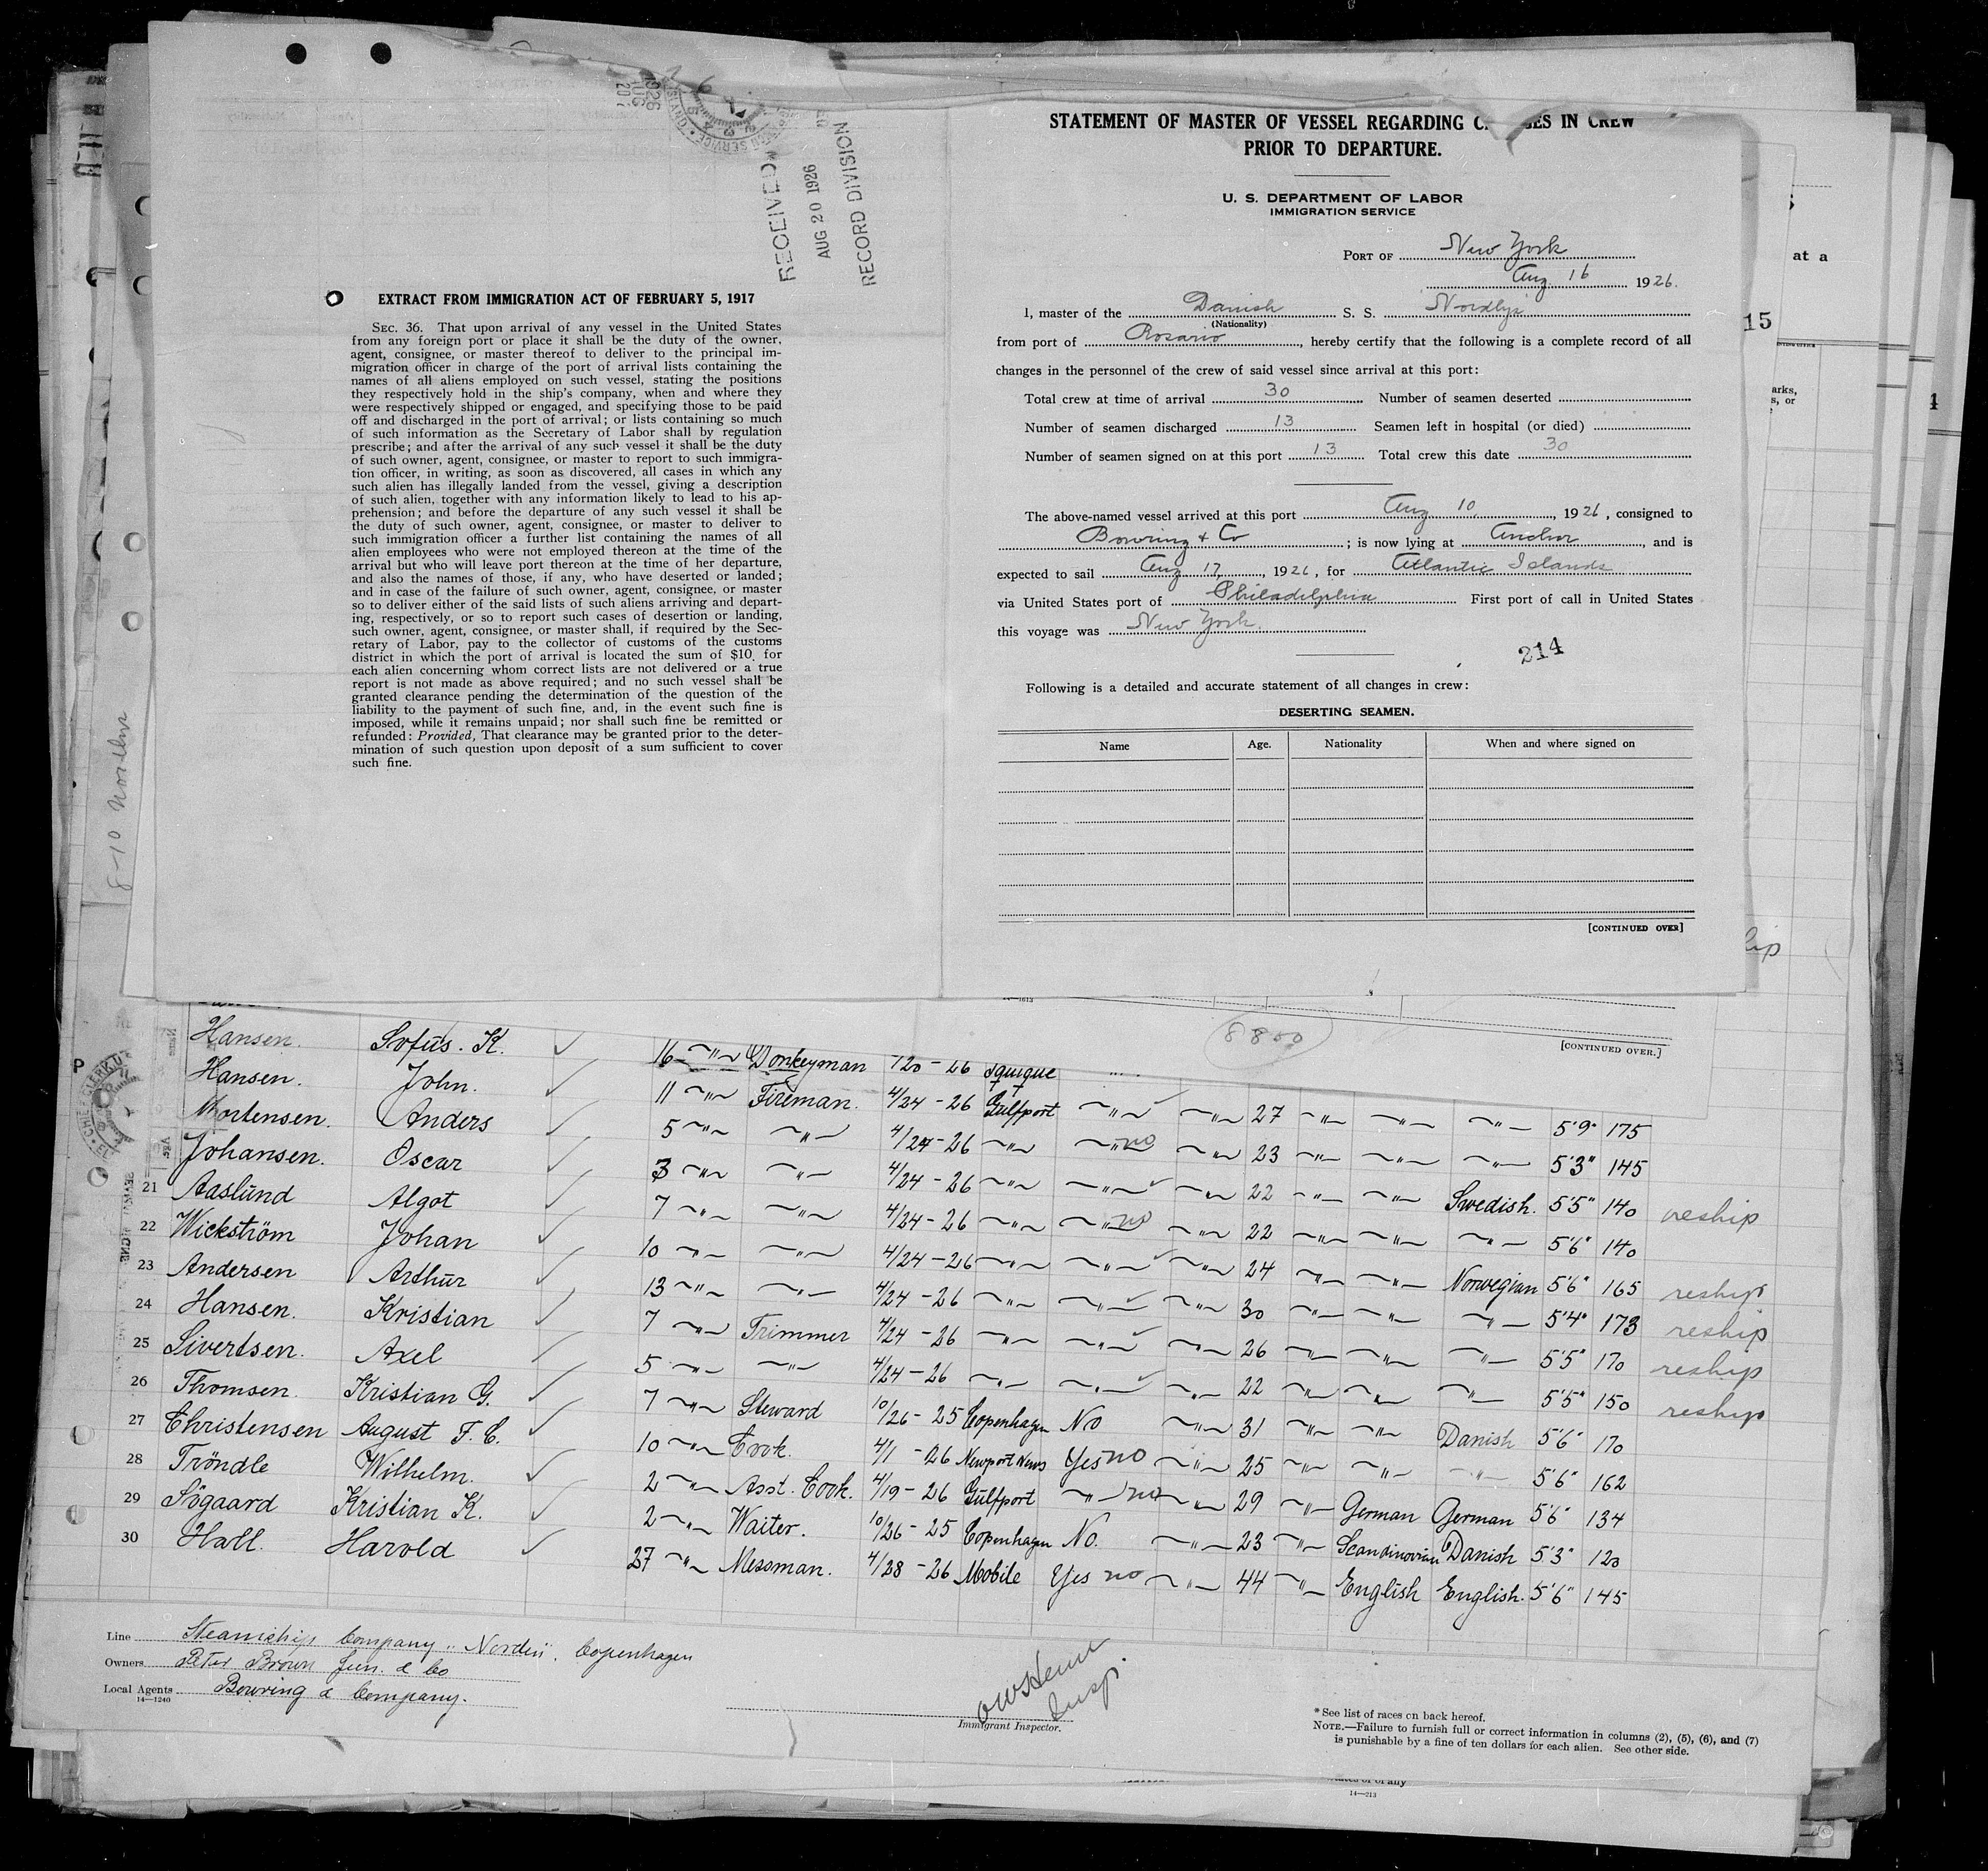 RECEIVED
AUG 20 1926
RECORD DIVISION
EXTRACT FROM IMMIGRATION ACT OF FEBRUARY 5, 1917
SEC. 36. That upon arrival of any vessel in the United States
from any foreign port or place it shall be the duty of the owner,
agent, consignee, or master thereof to deliver to the principal im-
migration officer in charge of the port of arrival lists containing the
names of all aliens employed on such vessel, stating the positions
they respectively hold in the ship's company, when and where they
were respectively shipped or engaged, and specifying those to be paid
off and discharged in the port of arrival; or lists containing so much
of such information as the Secretary of Labor shall by regulation
prescribe; and after the arrival of any such vessel it shall be the duty
of such owner, agent, consignee, or master to report to such immigra-
tion officer, in writing, as soon as discovered, all cases in which any
such alien has illegally landed from the vessel, giving a description
of such alien, together with any information likely to lead to his ap-
prehension; and before the departure of any such vessel it shall be
the duty of such owner, agent, consignee, or master to deliver to
such immigration officer a further list containing the names of all
alien employees who were not employed thereon at the time of the
arrival but who will leave port thereon at the time of her departure,
and also the names of those, if any, who have deserted or landed;
and in case of the failure of such owner, agent, consignee, or master
so to deliver either of the said lists of such aliens arriving and depart-
ing, respectively, or so to report such cases of desertion or landing,
such owner, agent, consignee, or master shall, if required by the Sec-
retary of Labor, pay to the collector of customs of the customs
district in which the port of arrival is located the sum of $10 for
each alien concerning whom correct lists are not delivered or a true
report is not made as above required; and no such vessel shall be
granted clearance pending the determination of the question of the
liability to the payment of such fine, and, in the event such fine is
imposed, while it remains unpaid; nor shall such fine be remitted or
refunded: Provided, That clearance may be granted prior to the deter-
mination of such question upon deposit of a sum sufficient to cover
such fine.
STATEMENT OF MASTER OF VESSEL REGARDING IN CREW
PRIOR TO DEPARTURE.
U. S. DEPARTMENT OF LABOR
IMMIGRATION SERVICE
PORT OF New York
Aug. 16 1926.
I, master of the Danish S. S. Nordlys
(Nationality)
from port of Rosario, hereby certify that the following is a complete record of all
changes in the personnel of the crew of said vessel since arrival at this port:
Total crew at time of arrival 30 Number of seamen deserted
Number of seamen discharged 13 Seamen left in hospital (or died)
Number of seamen signed on at this port 13 Total crew this date 30
The above-named vessel arrived at this port Aug 10, 1926, consigned to
Bowring & Co; is now lying at Anchor, and is
expected to sail Aug 17, 1926, for Atlantic Islands
via United States port of Philadelphia First port of call in United States
this voyage was New York.
214
Following is a detailed and accurate statement of all changes in crew:
DESERTING SEAMEN.
Name Age. Nationality When and where signed on
[CONTINUED OVER]
at a
15
8800
[CONTINUED OVER.]
Hansen. Sofus. K. 16 〃 Donkeyman 20-26 Iquique
Hansen. John. 11 〃 Fireman. 4/24-26 Gulfport 〃 〃 27 〃 〃 〃 5'9" 175
Mortensen. Anders 5 〃 〃 4/24-26 〃 〃 no 〃 23 〃 〃 〃 5'3" 145
Johansen. Oscar 3 〃 〃 4/24-26 〃 〃 〃 22 〃 〃 Swedish. 5'5" 140 reship
21 Aaslund Algot 7 〃 〃 4/24-26 〃 〃 no 〃 22 〃 〃 〃 5'6" 140
22 Wickström Johan 10 〃 〃 4/24-26 〃 〃 〃 24 〃 〃 Norwegian 5'6" 165 reship
23 Andersen Arthur 13 〃 〃 4/24-26 〃 〃 〃 30 〃 〃 〃 5'4" 173 reship
24 Hansen. Kristian 7 〃 Trimmer 4/24-26 〃 〃 〃 26 〃 〃 〃 5'5" 170 reship
25 Sivertsen. Axel 5 〃 〃 4/24-26 〃 〃 〃 22 〃 〃 〃 5'5" 150 reship
26 Thomsen. Kristian G. 7 〃 Steward 10/26-25 Copenhagen No 〃 31 〃 〃 Danish 5'6" 170
27 Christensen August F. C. 10 〃 Cook. 4/1-26 Newport News Yes no 〃 25 〃 〃 〃 5'6" 162
28 Tröndle Wilhelm. 2 〃 Asst. Cook. 4/19-26 Gulfport 〃 no 〃 29 〃 German German 5'6" 134
29 Sögaard Kristian K. 2 〃 Waiter. 10/26-25 Copenhagen No. 〃 23 〃 Scandinavian Danish 5'3" 120
30 Hall. Harold 27 〃 Messman. 4/28-26 Mobile Yes no 〃 44 〃 English English. 5'6" 145
Line Steamship Company "Norden". Copenhagen
Owners Peter Brown Jun. & Co
Local Agents Bowring & Company.
14—1240
Insp.
Immigrant Inspector.
* See list of races on back hereof.
NOTE.—Failure to furnish full or correct information in columns (2), (5), (6), and (7)
is punishable by a fine of ten dollars for each alien. See other side.
14—213